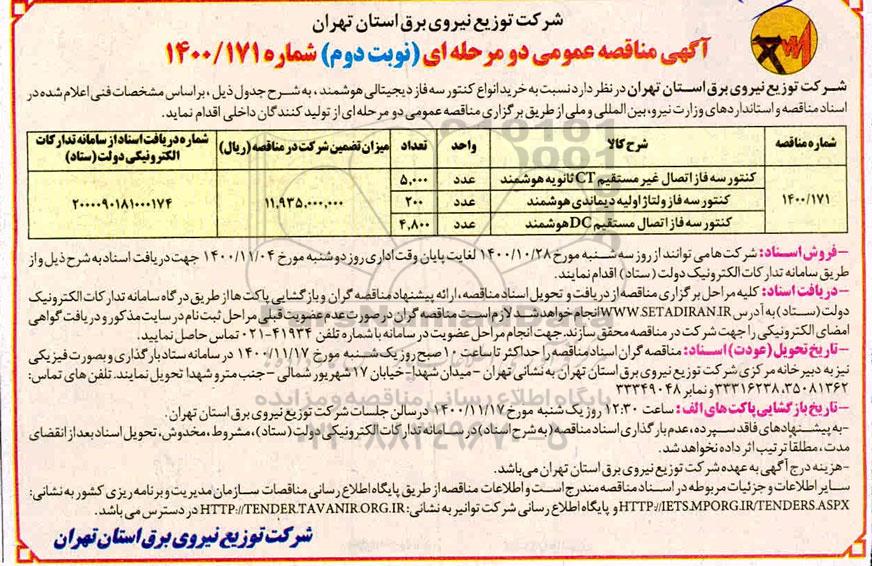 شرکت توزیع نیروی برق استان تهران
آگهی مناقصه عمومی دو مرحله ای (نوبت دوم) شماره ۱۴۰۰/۱۷۱
شرکت توزیع نیروی برق استان تهران در نظر دارد نسبت به خرید انواع کنتور سه فاز دیجیتالی هوشمند ، به شرح جدول ذیل ، براساس مشخصات فنی اعلام شده در
اسناد مناقصه و استانداردهای وزارت نیرو، بین المللی و ملی از طریق برگزاری مناقصه عمومی دو مرحله ای از تولید کنندگان داخلی اقدام نماید.
شماره مناقصه شرح کالا واحد تعداد میزان تضمین شرکت در مناقصه (ریال) شماره دریافت اسناد از سامانه تدارکات
الکترونیکی دولت (ستاد)
کنتور سه فاز اتصال غیر مستقیم CT ثانویه هوشمند عدد ۵,۰۰۰
۱۴۰۰/۱۷۱ کنتور سه فاز ولتاژ اولیه دیماندی هوشمند عدد ۲۰۰ ۱۱,۹۳۵,۰۰۰,۰۰۰ ۲۰۰۰۰۹۰۱۸۱۰۰۰۱۷۴
کنتور سه فاز اتصال مستقیم DC هوشمند عدد ۴,۸۰۰
-فروش اسناد: شرکت ها می توانند از روز سه شنبه مورخ ۱۴۰۰/۱۰/۲۸ لغایت پایان وقت اداری روز دوشنبه مورخ ۱۴۰۰/۱۱/۰۴ جهت دریافت اسناد به شرح ذیل و از
طریق سامانه تدارکات الکترونیک دولت (ستاد) اقدام نمایند.
-دریافت اسناد: کلیه مراحل برگزاری مناقصه از دریافت و تحویل اسناد مناقصه ، ارائه پیشنهاد مناقصه گران و بازگشایی پاکت ها از طریق درگاه سامانه تدارکات الکترونیک
دولت (ستاد) به آدرس WWW.SETADIRAN.IR انجام خواهد شد. لازم است مناقصه گران در صورت عدم عضویت قبلی مراحل ثبت نام در سایت مذکور و دریافت گواهی
امضای الکترونیکی را جهت شرکت در مناقصه محقق سازند. جهت انجام مراحل عضویت در سامانه با شماره تلفن ۴۱۹۳۴-۰۲۱ تماس حاصل نمایید.
-تاریخ تحویل (عودت) اسناد: مناقصه گران اسناد مناقصه را حداکثر تا ساعت ۱۰ صبح روز یک شنبه مورخ ۱۴۰۰/۱۱/۱۷ در سامانه ستاد بارگذاری و بصورت فیزیکی
نیز به دبیرخانه مرکزی شرکت توزیع نیروی برق استان تهران به نشانی تهران -میدان شهدا- خیابان ۱۷ شهریور شمالی - جنب مترو شهدا تحویل نمایند. تلفن های تماس:
۳۵۰۸۱۳۶۲، ۳۳۳۱۶۲۳۸ و نمابر ۳۳۳۴۹۰۴۸
-تاریخ بازگشایی پاکت های الف: ساعت ۱۲:۳۰ روز یک شنبه مورخ ۱۴۰۰/۱۱/۱۷ در سالن جلسات شرکت توزیع نیروی برق استان تهران.
-به پیشنهادهای فاقد سپرده، عدم بارگذاری اسناد مناقصه (به شرح اسناد) در سامانه تدارکات الکترونیکی دولت (ستاد)، مشروط، مخدوش، تحویل اسناد بعد از انقضای
مدت ، مطلقاً ترتیب اثر داده نخواهد شد.
-هزینه درج آگهی به عهده شرکت توزیع نیروی برق استان تهران می باشد.
سایر اطلاعات و جزئیات مربوطه در اسناد مناقصه مندرج است و اطلاعات مناقصه از طریق پایگاه اطلاع رسانی مناقصات سازمان مدیریت و برنامه ریزی کشور به نشانی:
HTTP://IETS.MPORG.IR/TENDERS.ASPX و پایگاه اطلاع رسانی شرکت توانیر به نشانی: HTTP://TENDER.TAVANIR.ORG.IR در دسترس می باشد.
شرکت توزیع نیروی برق استان تهران
پایگاه اطلاع رسانی مناقصه و مزایده
۰۲۱-۸۸۳۴۹۶۷۰-۵